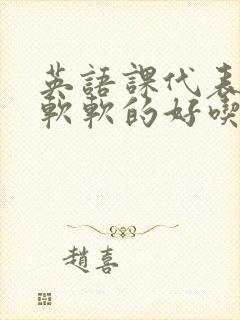 英語課代表
軟軟的好喫
趙喜